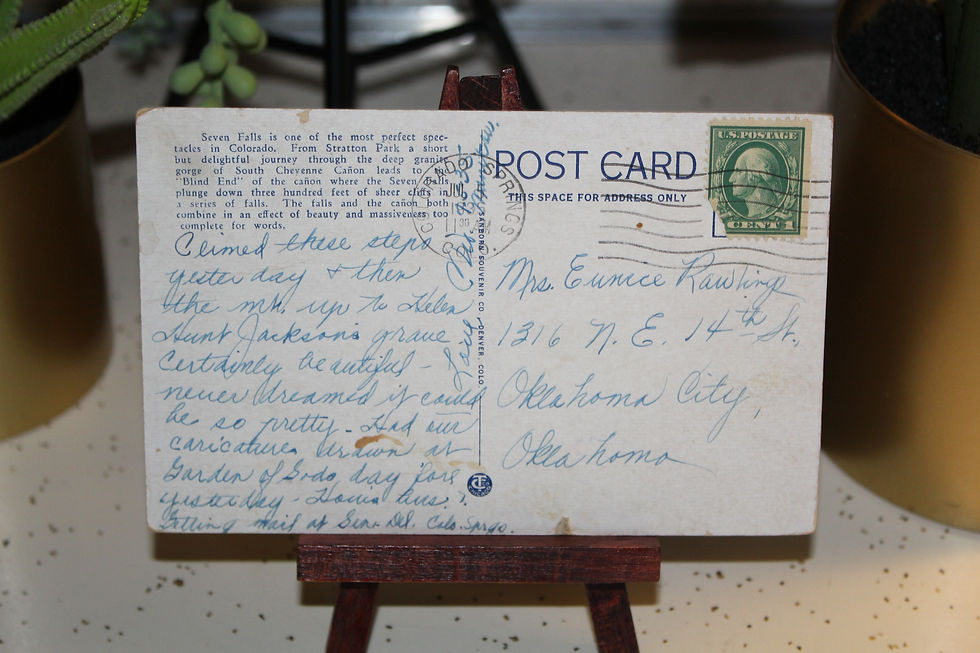 Seven Falls is one of the most perfect spec-
tacles in Colorado. From Stratton Park a short
but delightful journey through the deep granite
gorge of South Cheyenne Cañon leads to a
"Blind End" of the cañon where the Seven Falls
plunge down three hundred feet of sheer cliffs in
a series of falls. The falls and the cañon both
combine in an effect of beauty and massiveness too
complete for words.
Climed these steps
yesterday & then
the mt. up to Helen
Hunt Jackson's grave
Certainly beautiful -
never dreamed it could
be so pretty - Had our
caricatures drawn at
Garden of Gods day fore
yesterday - How's bus.?
Getting mail at Gen. Del. Colo. Spgs.
Love
COLORADO SPRINGS
SANBORN SOUVENIR CO. DENVER, COLO.
CT
CHICAGO
POST CARD
THIS SPACE FOR ADDRESS ONLY
U.S. POSTAGE
1 CENT 1
Mrs. Eunice Rawlings
1316 N. E. 14th St.,
Oklahoma City,
Oklahoma